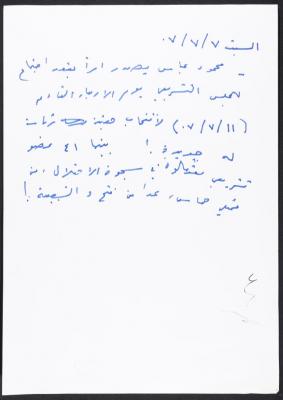 السبت ٠٧/٧/٧
- محمود عباس يصدر امراً بعقد اجتماع
للمجلس التشريعي يوم الاربعاء القادم
(٠٧/٧/١١) لانتخاب هيئة رئاسة
له جديدة! بينما ٤١ عضو
تشريعي معتقلون في سجون الاحتلال من
ممثلي حماس عدا عن فتح و الشعبية!
٤